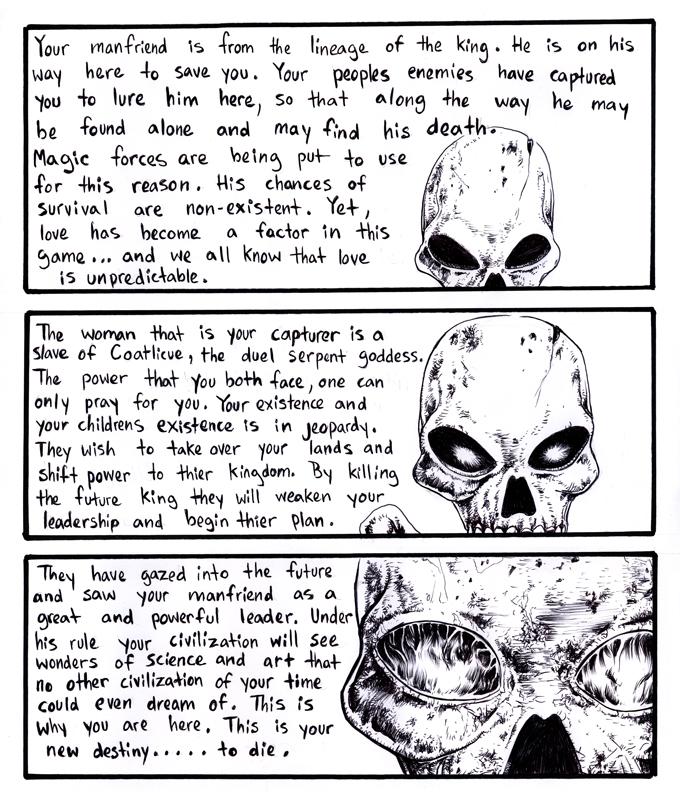 Your manfriend is from the lineage of the king. He is on his
way here to save you. Your peoples enemies have captured
you to lure him here, so that along the way he may
be found alone and may find his death.
Magic forces are being put to use
for this reason. His chances of
survival are non-existent. Yet,
love has become a factor in this
game... and we all know that love
is unpredictable.
The woman that is your capturer is a
slave of Coatlicue, the duel serpent goddess.
The power that you both face, one can
only pray for you. Your existence and
your childrens existence is in jeopardy.
They wish to take over your lands and
shift power to thier kingdom. By killing
the future king they will weaken your
leadership and begin thier plan.
They have gazed into the future
and saw your manfriend as a
great and powerful leader. Under
his rule your civilization will see
wonders of science and art that
no other civilization of your time
could even dream of. This is
why you are here. This is your
new destiny..... to die.